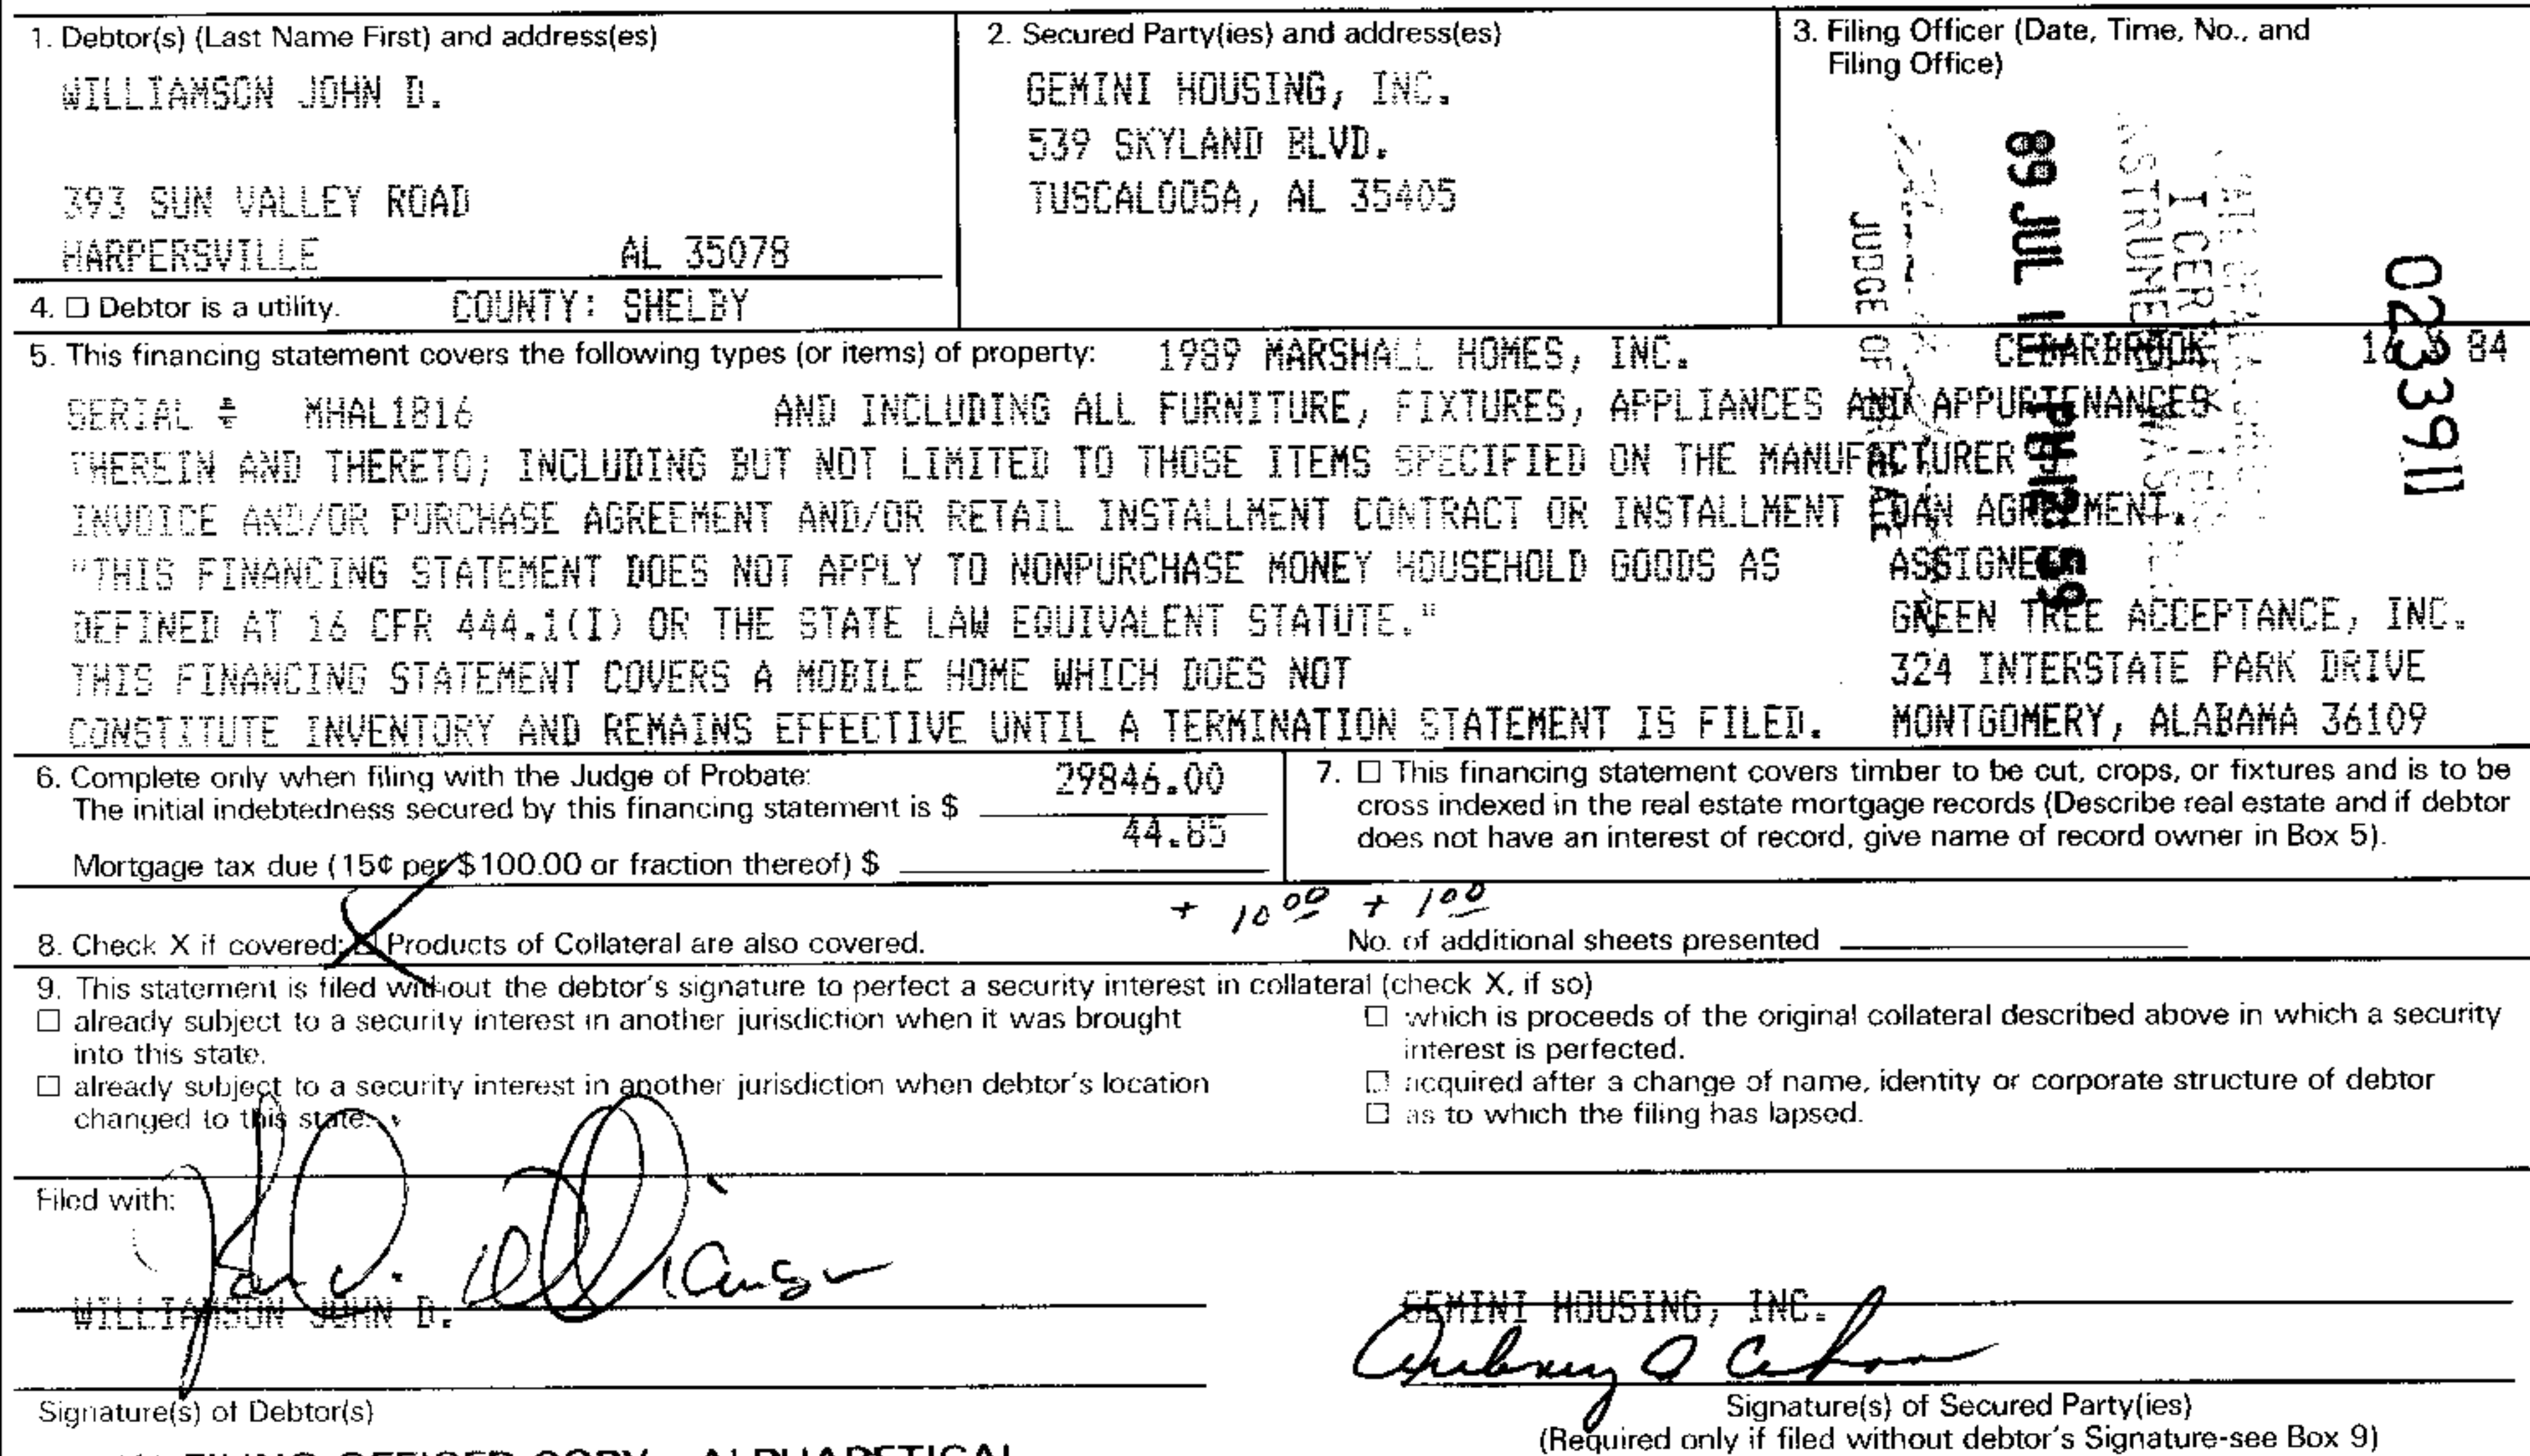 1. Debtor(s) (Last Name First) and address(es)
WILLIAMSON JOHN D.
393 SUN VALLEY ROAD
HARPERSVILLE AL 35078
4. ☐ Debtor is a utility. COUNTY: SHELBY
2. Secured Party(ies) and address(es)
GEMINI HOUSING, INC.
539 SKYLAND BLVD.
TUSCALOOSA, AL 35405
3. Filing Officer (Date, Time, No., and
Filing Office)
023391
89 JUL 11 PM 12:59
I CER
JUDGE OF PROBATE
5. This financing statement covers the following types (or items) of property: 1989 MARSHALL HOMES, INC. CEDARBROOK 84
SERIAL # MHAL1816 AND INCLUDING ALL FURNITURE, FIXTURES, APPLIANCES AND APPURTENANCES
THEREIN AND THERETO; INCLUDING BUT NOT LIMITED TO THOSE ITEMS SPECIFIED ON THE MANUFACTURER
INVOICE AND/OR PURCHASE AGREEMENT AND/OR RETAIL INSTALLMENT CONTRACT OR INSTALLMENT LOAN AGREEMENT.
"THIS FINANCING STATEMENT DOES NOT APPLY TO NONPURCHASE MONEY HOUSEHOLD GOODS AS
DEFINED AT 16 CFR 444.1(I) OR THE STATE LAW EQUIVALENT STATUTE."
THIS FINANCING STATEMENT COVERS A MOBILE HOME WHICH DOES NOT
CONSTITUTE INVENTORY AND REMAINS EFFECTIVE UNTIL A TERMINATION STATEMENT IS FILED.
ASSIGNEE
GREEN TREE ACCEPTANCE, INC.
324 INTERSTATE PARK DRIVE
MONTGOMERY, ALABAMA 36109
6. Complete only when filing with the Judge of Probate:
The initial indebtedness secured by this financing statement is $ 29846.00
Mortgage tax due (15¢ per $100.00 or fraction thereof) $ 44.85
7. ☐ This financing statement covers timber to be cut, crops, or fixtures and is to be
cross indexed in the real estate mortgage records (Describe real estate and if debtor
does not have an interest of record, give name of record owner in Box 5).
+ 10 00 + 1 00
8. Check X if covered: ☒ Products of Collateral are also covered.
No. of additional sheets presented
9. This statement is filed without the debtor's signature to perfect a security interest in collateral (check X, if so)
☐ already subject to a security interest in another jurisdiction when it was brought
into this state.
☐ already subject to a security interest in another jurisdiction when debtor's location
changed to this state.
☐ which is proceeds of the original collateral described above in which a security
interest is perfected.
☐ acquired after a change of name, identity or corporate structure of debtor
☐ as to which the filing has lapsed.
Filed with:
John D. Williamson
WILLIAMSON JOHN D.
Signature(s) of Debtor(s)
GEMINI HOUSING, INC.
Signature(s) of Secured Party(ies)
(Required only if filed without debtor's Signature-see Box 9)
FILING OFFICER COPY - ALPHABETICAL